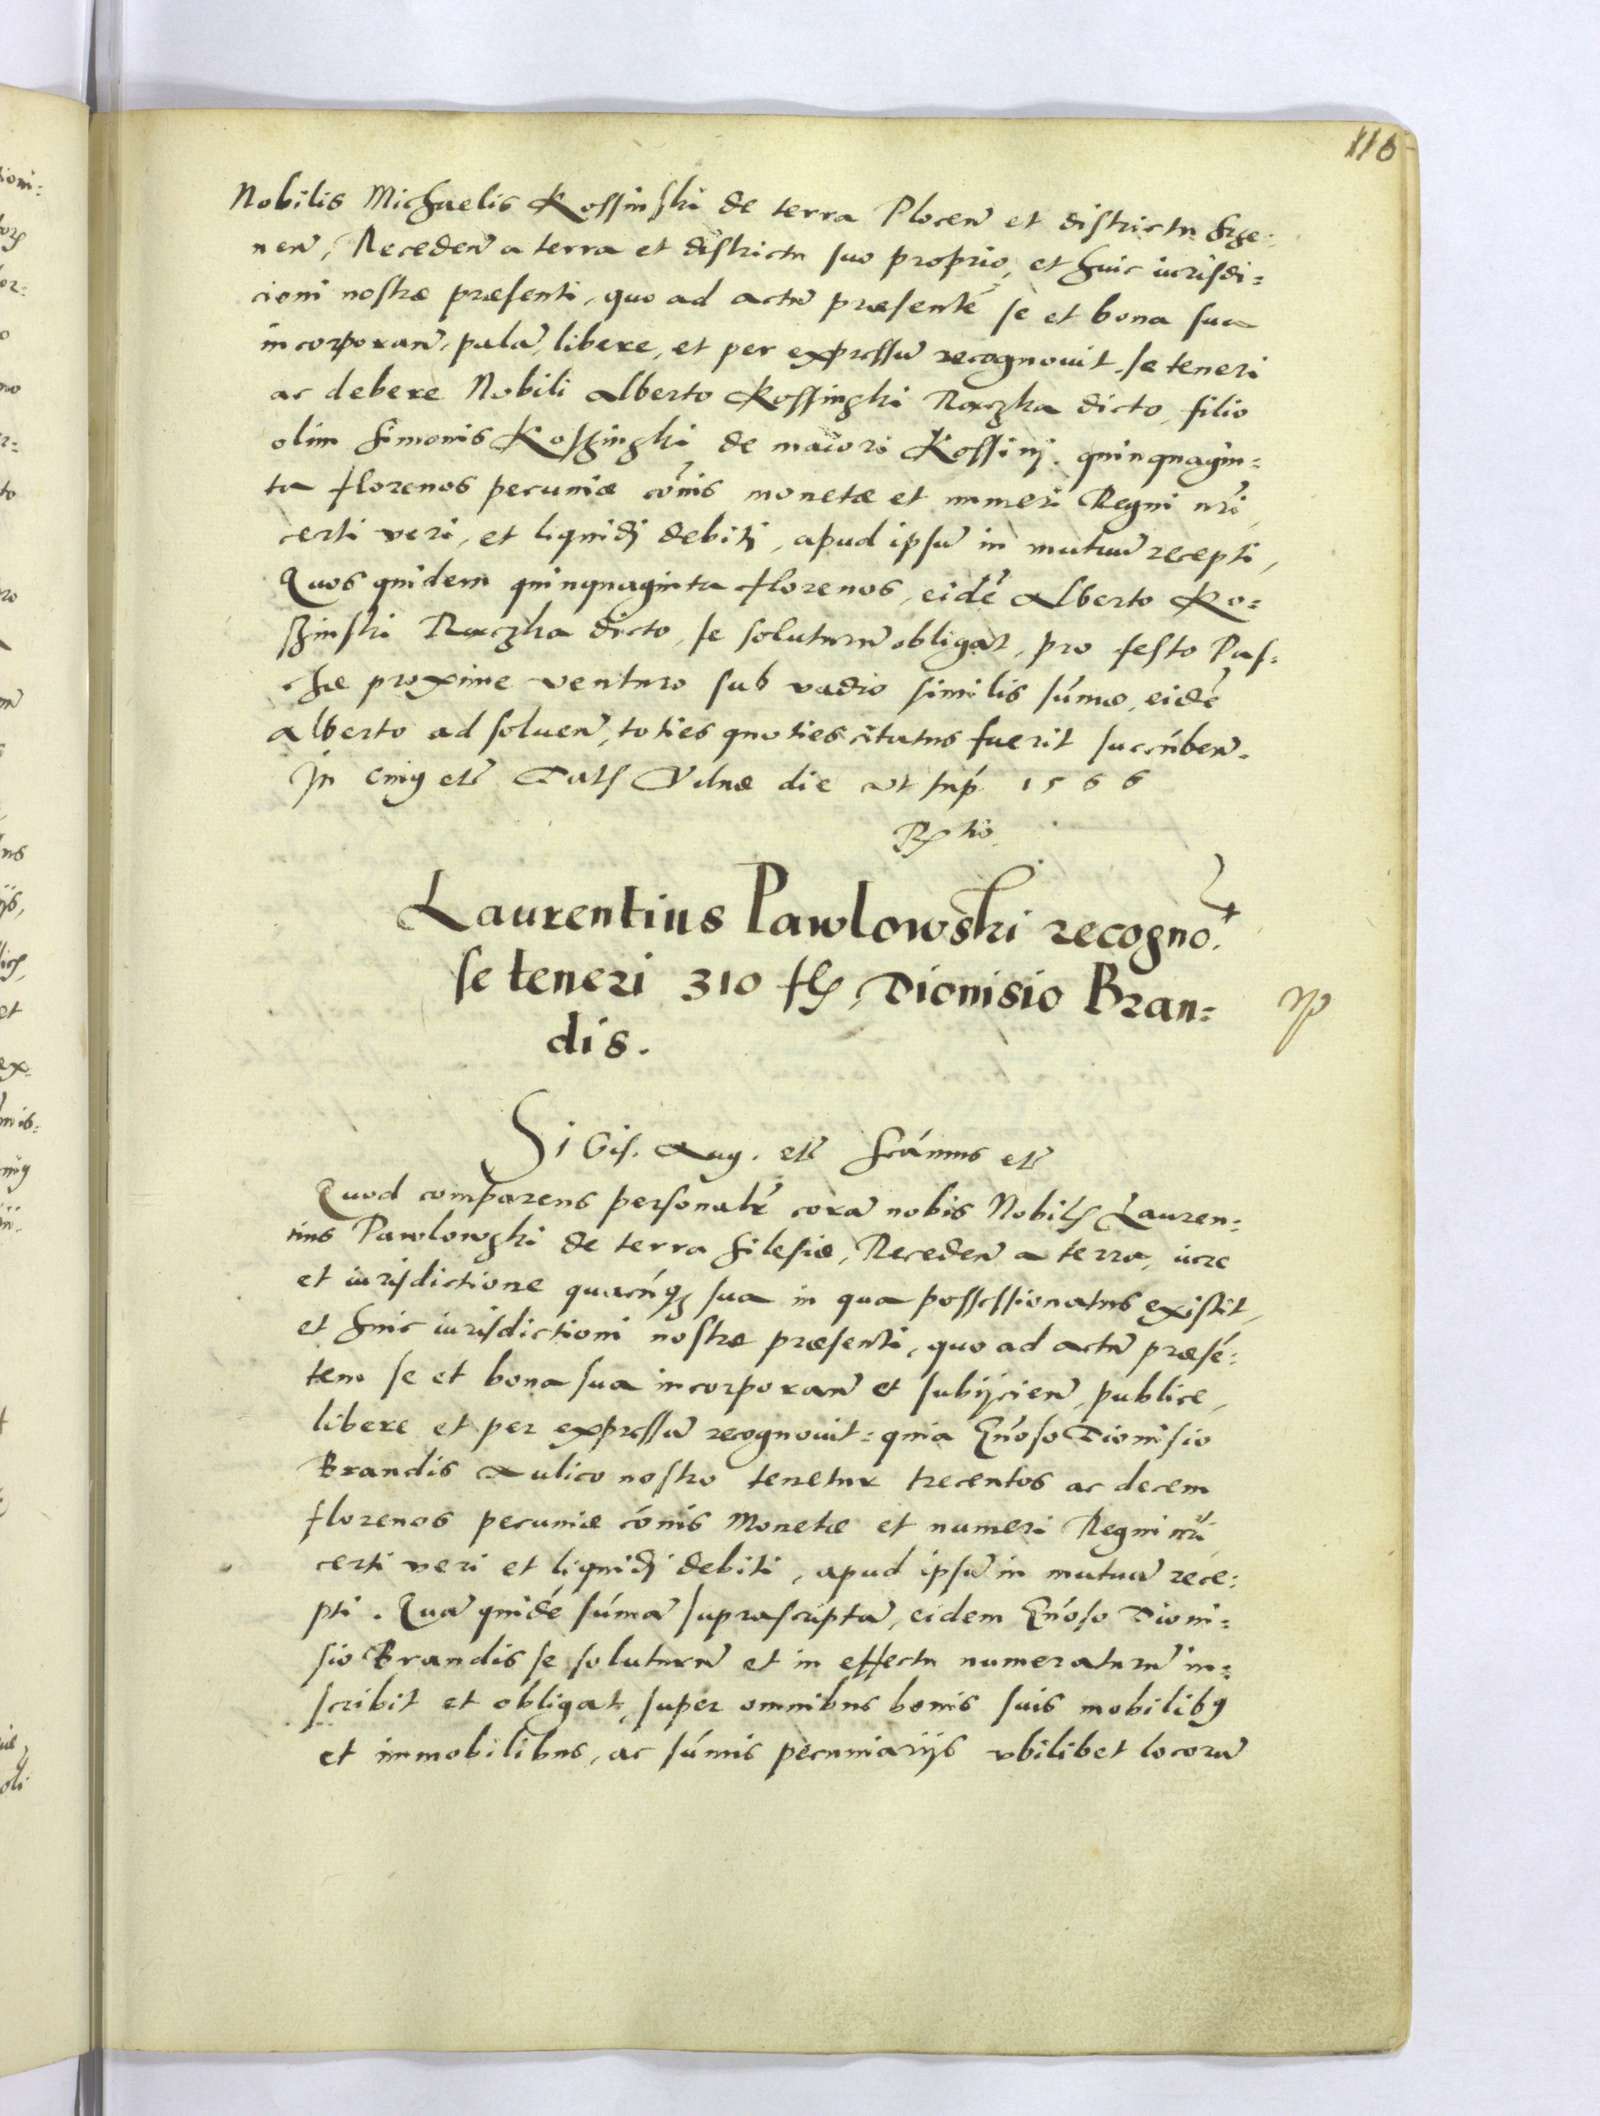 116
Nobilis Michaelis Kossinski de terra Plocen̄ et districtu Srze:
nen̄, Receden̄ a terra et districtu suo proprio, et huic iurisdi=
cioni nostræ præsenti, quo ad actū præsentē se et bona sua
incorporan̄, palā, libere, et per expressū recognouit, se teneri
ac debere Nobili Alberto Kossinski Raczka dicto, filio
olim Simonis Koszinski de maiori Kossinj. quinquagin=
ta florenos pecuniæ cōīs monetæ et numeri Regni nr̄i,
certi veri, et liquidj debitj, apud ipsū in mutuū recepti,
Quos quidem quinquaginta florenos, eidē Alberto Ko=
szinski Raczka dicto, se soluturū obligat, pro festo Pas=
chæ proxime venturo sub vadio similis sūmæ, eidē
Alberto ad soluen̄, toties quoties citatus fuerit succūben̄.
In cuiꝯ etc̄ Datꝭ Vilnæ die vt sup̄ 1566
Laurentius Pawlowski recogno.t
se teneri 310 flꝭ, Dionisio Bran=
dis.
Sigis. Aug. etc̄ scāmus etc̄
Quod comparens personalr̄ corā nobis Nobilꝭ Lauren=
tius Pawlowski de terra Silesiæ, Receden̄ a terra, iure
et iurisdictione quacūqꝫ sua in qua possessionatus existit,
et huic iurisdictioni nostræ præsenti, quo ad actū præsē=
tem se et bona sua incorporan̄ et subijcien̄, publice,
libere et per expressū recognouit: quia Gn̄oso Dionisio
Brandis Aulico nostro tenetur trecentos ac decem
florenos pecuniæ cōīs Monetæ et numeri Regni nr̄i
certi veri et liquidj debiti, apud ipsū in mutuū rece=
pti. Quā quidē sūmā suprascriptā, eidem Gn̄oso Dioni=
sio Brandis se soluturū et in effectu numeraturū in=
scribit et obligat, super omnibus bonis suis mobilibꝯ
et immobilibus, ac sūmis pecuniarijs vbilibet locorū